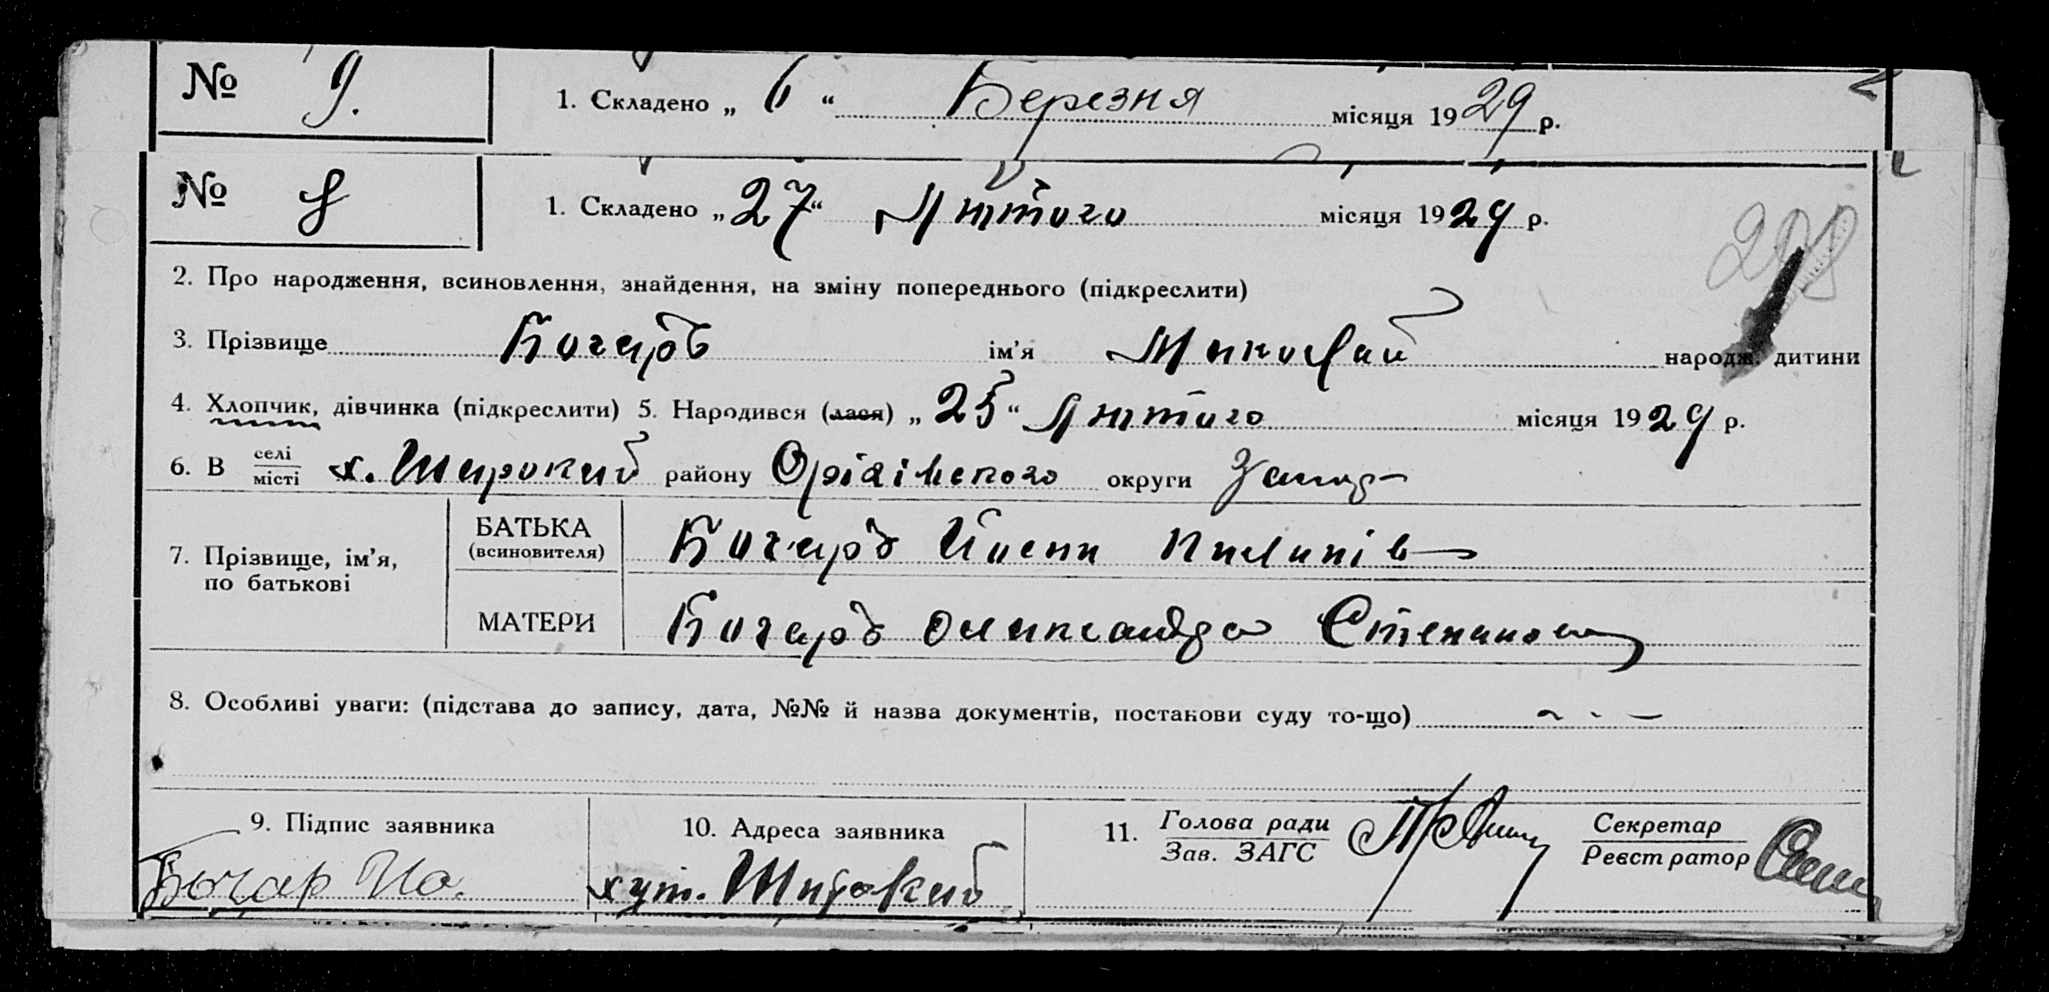 № 9. 1. Складено „ 6 “ Березня місяця 1929 р.
№ 8 1. Складено „ 27 “ Лютого місяця 1929 р.
2. Про народження, всиновлення, знайдення, на зміну попереднього (підкреслити)
3. Прізвище Бочарь ім’я Миколай народж. дитини
4. Хлопчик, дівчинка (підкреслити) 5. Народився (лася) „ 25 “ Лютого місяця 1929 р.
6. В селі місті х. Широкий району Оріхівського округи Запор
7. Прізвище, ім’я, по батькові
БАТЬКА (всиновителя) Бочарь Йосип Пилипів
МАТЕРИ Бочарь Олександра Степанова
8. Особливі уваги: (підстава до запису, дата, №№ й назва документів, постанови суду то-що) - - -
9. Підпис заявника 10. Адреса заявника 11. Голова ради Зав. ЗАГС Секретар Реєстратор
Бочар Йо. хут. Широкий